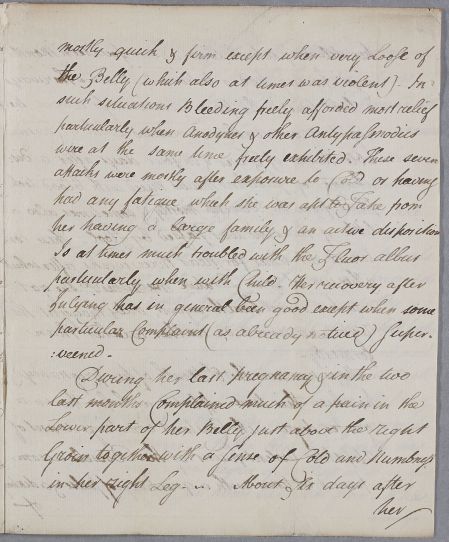 mostly quick & firm except when very Loose of
the Belly (which also at times was violent) - In
such situations Bleeding freely afforded most relief
particularly when Anodynes & other Antyspasmodics
were at the same time freely exhibited. These seven
attacks were mostly after exposure to Cold or having
had any fatigue which she was apt to Take from
her having a large family & an active disposition
Is at times much troubled with the Fluor albus
particularly when with Child. Her recovery after
Inlying has in general been good except when some
particular Complaint (as already noticed) Super-
:veened -
During her last pregnancy & in the two
last months Complained much of a pain in the
Lower part of her Belly just about the right
Groin together with a Sense of Cold and Numbness
in her right Leg - About days after
her